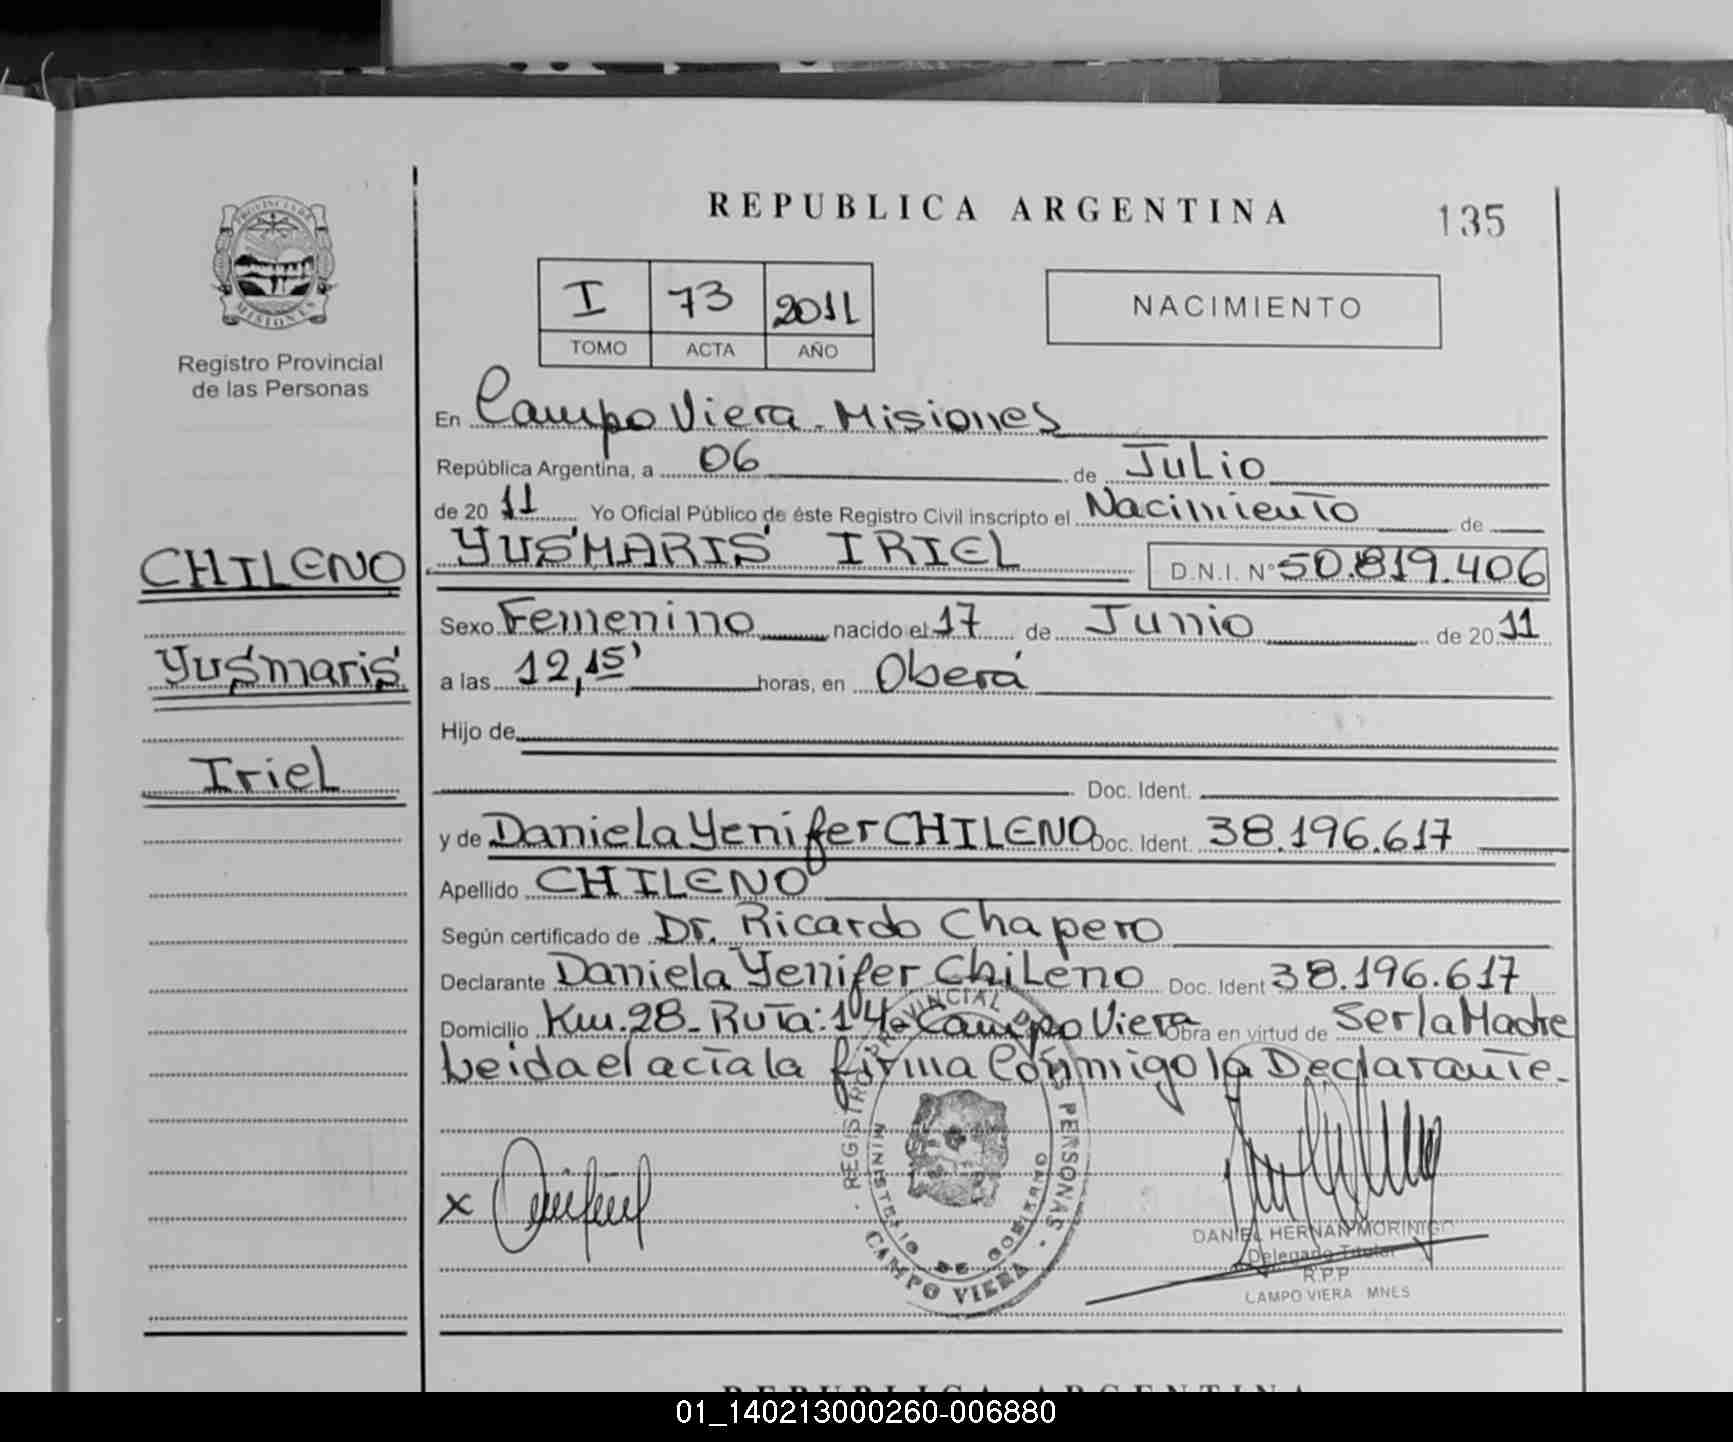 REPUBLICA ARGENTINA
135
PROVINCIA DE
MISIONES
Registro Provincial
de las Personas
I 73 2011
TOMO ACTA AÑO
NACIMIENTO
En Campo Viera - Misiones
República Argentina, a 06 de Julio
de 20 11 Yo Oficial Público de éste Registro Civil inscripto el Nacimiento de
CHILENO
YUSMARIS IRIEL D.N.I. Nº 50.819.406
Sexo Femenino nacido el 17 de Junio de 20 11
Yusmaris
a las 12,15' horas, en Oberá
Hijo de
Iriel
Doc. Ident.
y de Daniela Yenifer CHILENO Doc. Ident. 38.196.617
Apellido CHILENO
Según certificado de Dr. Ricardo Chapero
Declarante Daniela Yenifer Chileno Doc. Ident 38.196.617
Domicilio Km. 28 - Ruta: 14 - Campo Viera Obra en virtud de Ser la Madre
Leida el acta la firma Conmigo la Declarante.-
REGISTRO PROVINCIAL DE LAS PERSONAS - CAMPO VIERA -
MINISTERIO DE GOBIERNO
x
DANIEL HERNAN MORINIGO
Delegado Titular
R.P.P
CAMPO VIERA MNES
REPUBLICA ARGENTINA
01_140213000260-006880